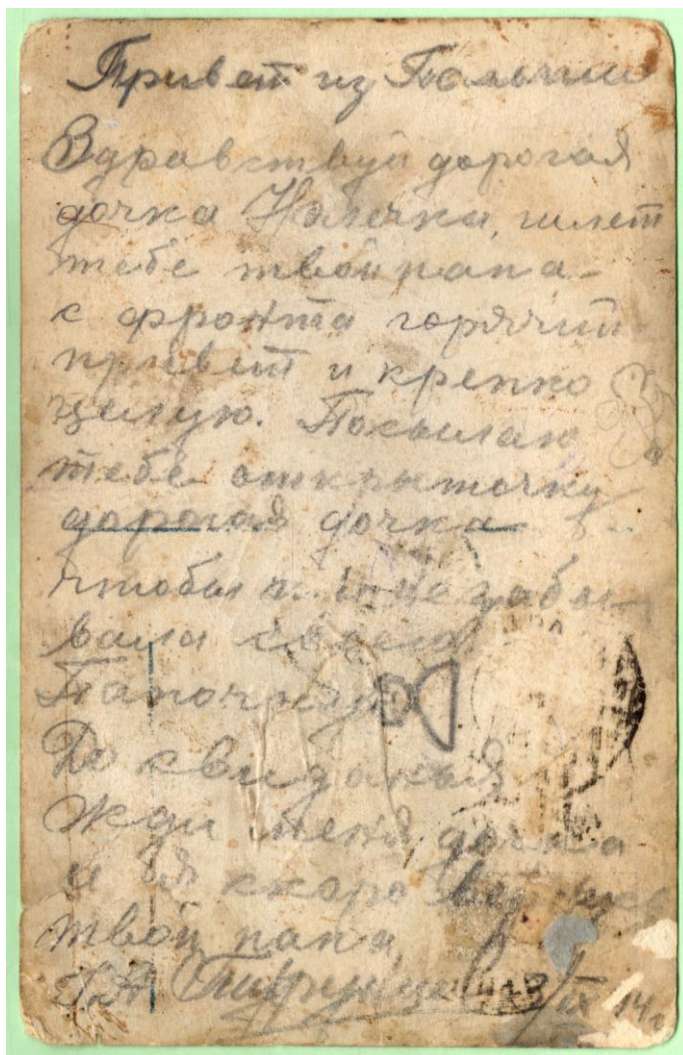 Привет из Польши
Здравствуй дорогая
дочка Нолечка, шлет
тебе твой папа
с фронта горячий
привет и крепко
целую. Посылаю
тебе открыточку
дорогая дочка
чтобы ты не забы-
вала своего
Папочку
До свиданья
Жди меня дочка
и я скоро вернусь
твой папа
IX 14